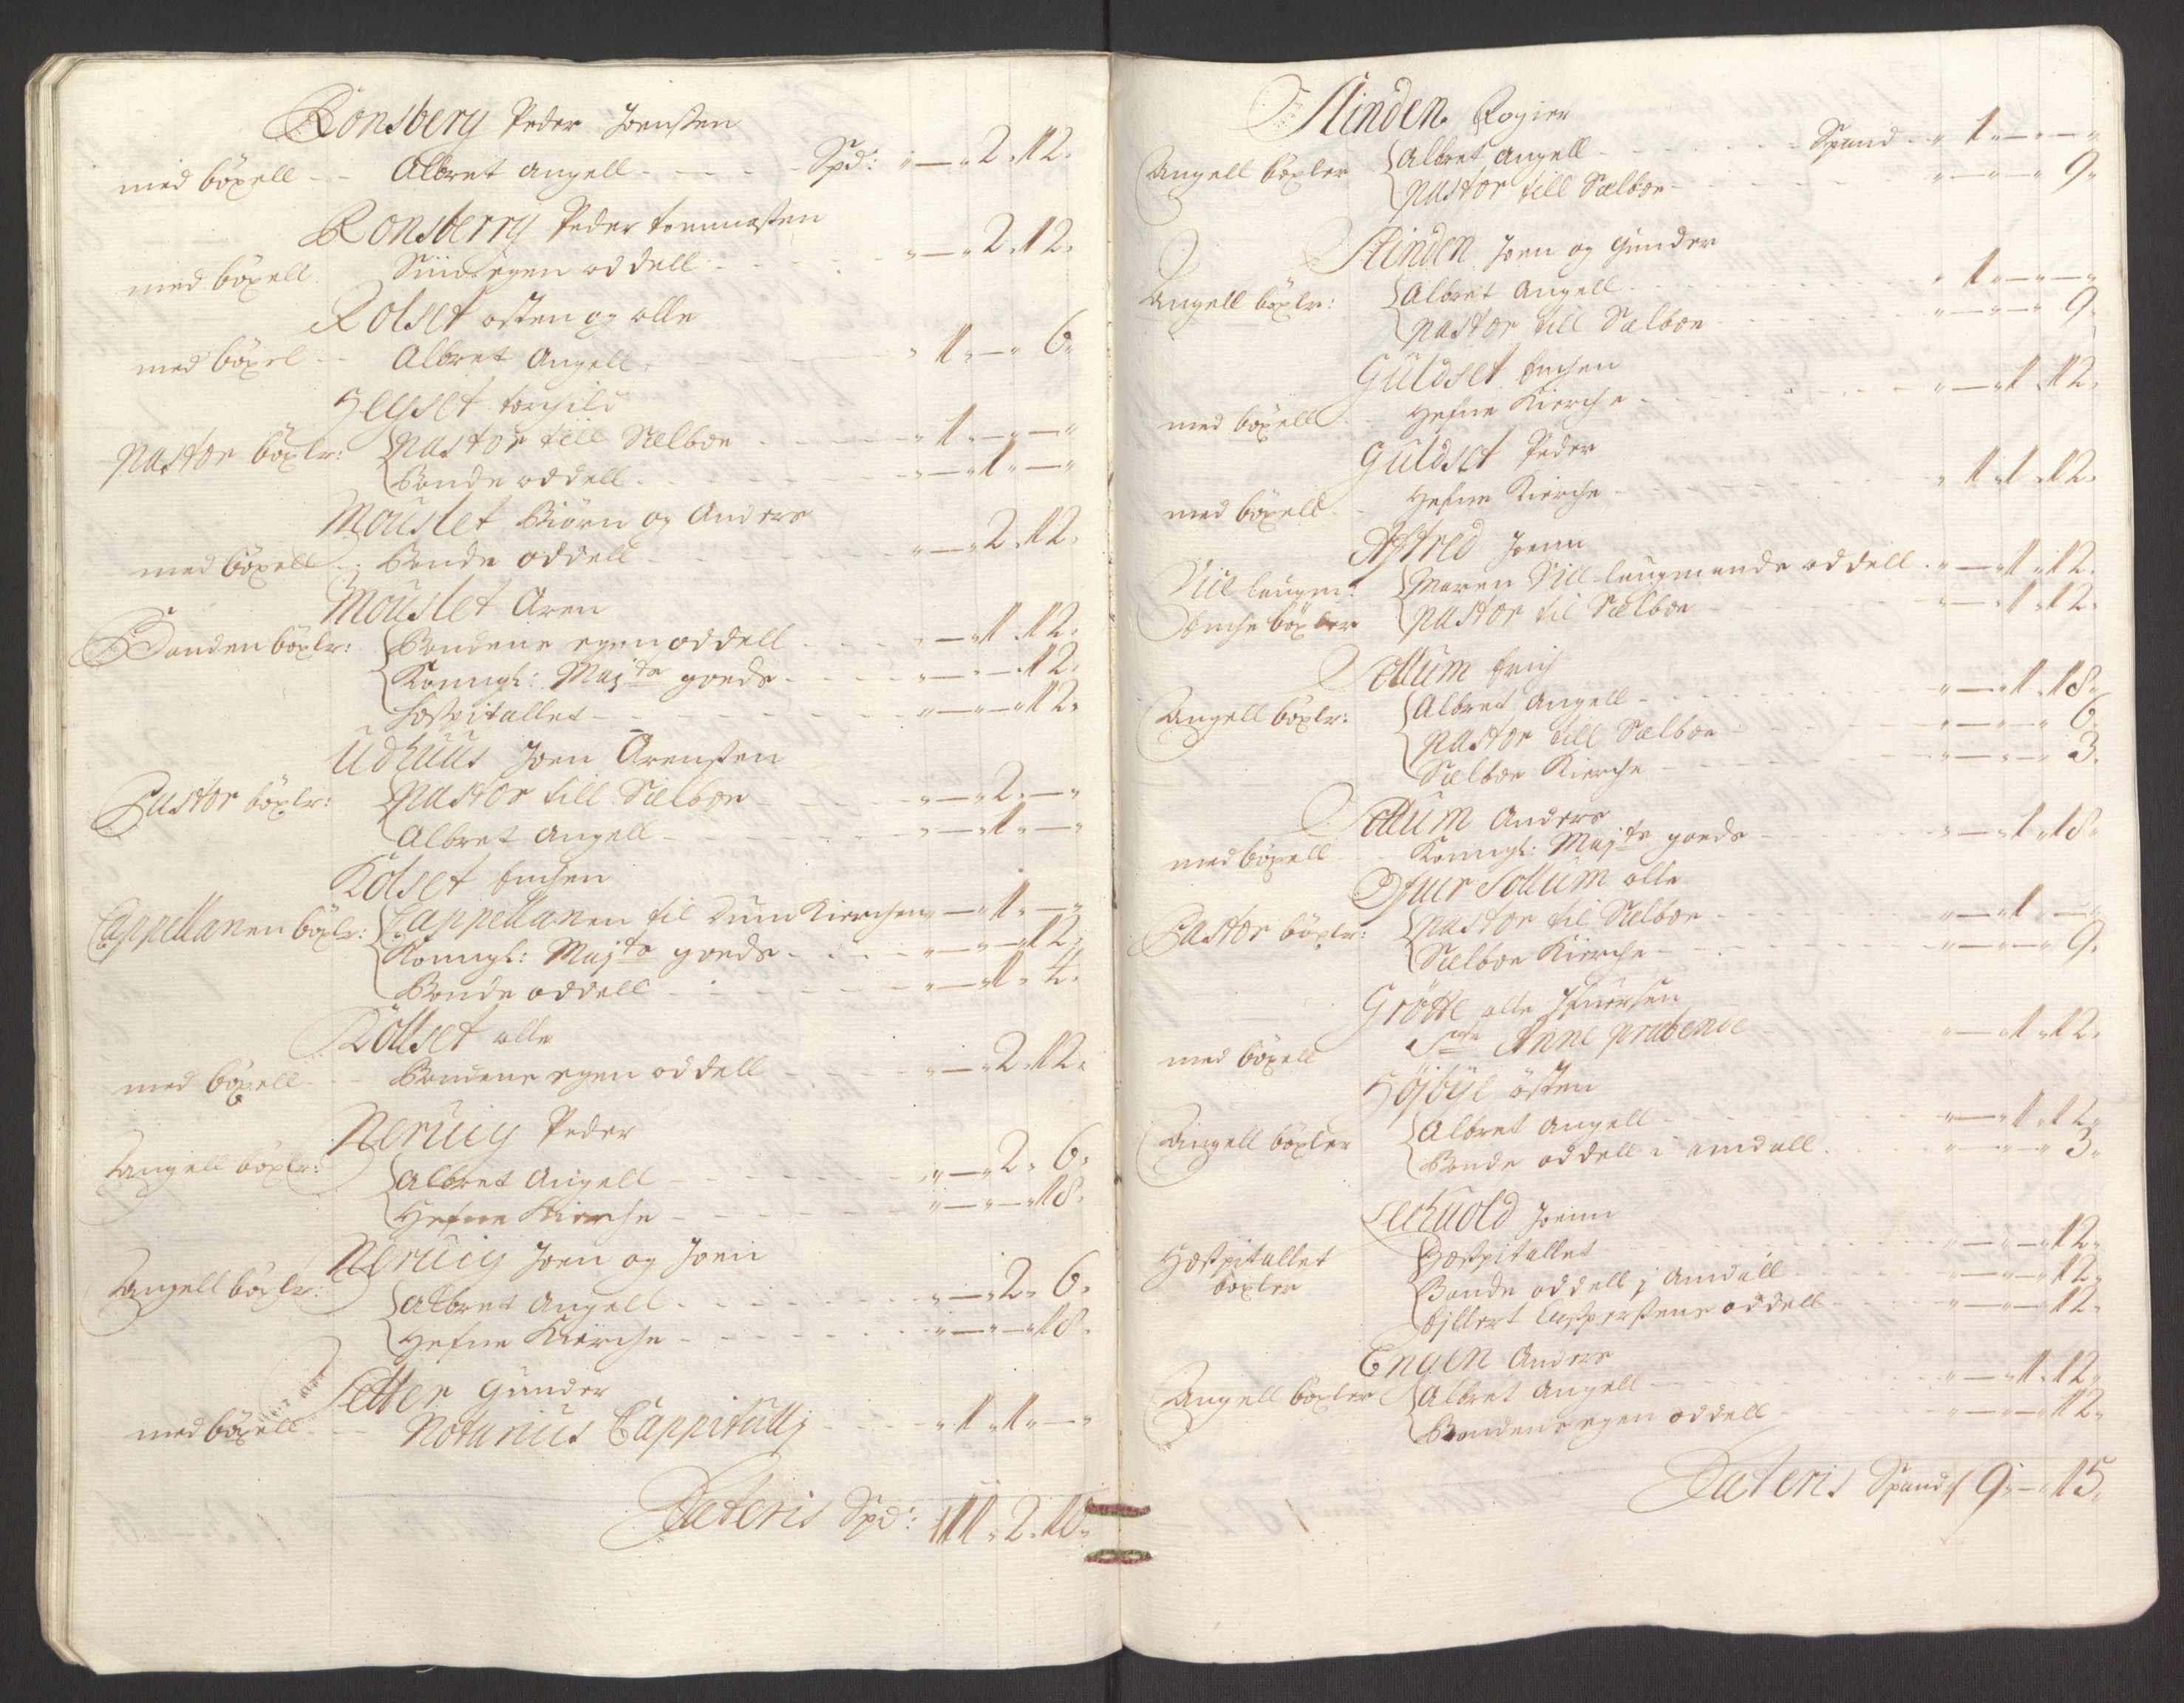 Ronsberg Peder Joensten
med böxell - - Albret Angell - - - - Spd: „ — „ 2 „ 12 „
Ronsberry Peder tommesten
med böxell Siin egen oddell - - - „ — „ 2 „ 12 „
Rolset osten og olle
med böxel - - Albret Angell „ 1 „ — „ 6 „
Seyset torchild
Pastor böxlr: Pastor till Selboe - - - „ 1 „ — „ — „
Bonde oddell - - - „ — „ 1 „ — „
Mouslet Biörn og Anders
med böxell - - Bonde oddell - - „ — „ 2 „ 12 „
Mouslet Aren
Bonden böxlr: Bondens egen oddell - - - „ — „ 1 „ 12 „
Konngl: Majts goeds - - - „ — „ — „ 12 „
Hospitallet - - - - „ — „ — „ 12 „
Udhuus Joen Arensten
Pastor böxlr: Pastor till Selboe - - - „ — „ 2 „ — „
Albret Angell - - - „ — „ 1 „ — „
Kolset
Cappellanen böxlr: Cappellanen til Dum Kierchen „ — „ 1 „ — „
Konngl: Majts goeds - - - „ — „ — „ 12 „
Bonde oddell - - - „ — „ 1 „ 4 „
Kollset olle
med böxell - - Bondens egen oddell - - - „ — „ 2 „ 12 „
Neruig Peder
Angell böxlr: Albret Angell - - - „ — „ 2 „ 6 „
Hefne Kierche - - - „ — „ — „ 18 „
Neruig Joen og Joen
Angell böxlr: Albret Angell - - - „ — „ 2 „ 6 „
Hefne Kierche - - - „ — „ — „ 18 „
Setter Gunder
med böxell - - Notarius Cappitully - - - „ 1 „ 1 „ — „
Lateris Spd: 11 „ 2 „ 10 „
Slinden Rogier
Angell böxler Albret Angell - - - Spand - „ 1 „ — „ — „
Pastor till Selboe - - - „ — „ — „ 9 „
Slinden Joen og Gunder
Angell böxlr: Albret Angell - - - „ 1 „ — „ — „
Pastor till Selboe - - - „ — „ — „ 9 „
Guldset
med böxell - - Hefne Kierche - - - „ — „ 1 „ 12 „
Guldset Peder
med böxell - - Hefne Kierche - - - „ 1 „ 1 „ 12 „
Aftred Joenn
Vill laugm: Maren Vill laugmands oddell - „ — „ 1 „ 12 „
Enche böxler Pastor til Selboe - - - „ — „ 1 „ 12 „
Sollum Erich
Angell böxlr: Albret Angell - - - „ — „ 1 „ 18 „
Pastor till Selboe - - - „ — „ — „ 6 „
Selboe Kierche - - - „ — „ — „ 3 „
Sollum Anders
med böxell - - Konngl: Majts goeds - - - „ — „ 1 „ 18 „
Ofuer Sollum olle
Pastor böxlr: Pastor til Selboe - - - „ — „ 1 „ — „
Selboe Kierche - - - „ — „ — „ 9 „
Grötte olle Ifuersen
med böxell Ste Anne prebende - - - „ — „ 1 „ 12 „
Höjbye östen
Angell böxler Albret Angell - - - „ — „ 1 „ 12 „
Bonde oddell i amdall - - - „ — „ — „ 3 „
Lechuold Joenn
Hospitallet Hospitallet - - - „ — „ — „ 12 „
böxler Bonde oddell j Amdall - - - „ — „ — „ 12 „
Ejllert Caspersens oddell - - - „ — „ — „ 12 „
Engen Anders
Angell böxler Albret Angell - - - „ — „ 1 „ 12 „
Bondens egen oddell - - - „ — „ — „ 12 „
Lateris Spand 9 „ — „ 15 „